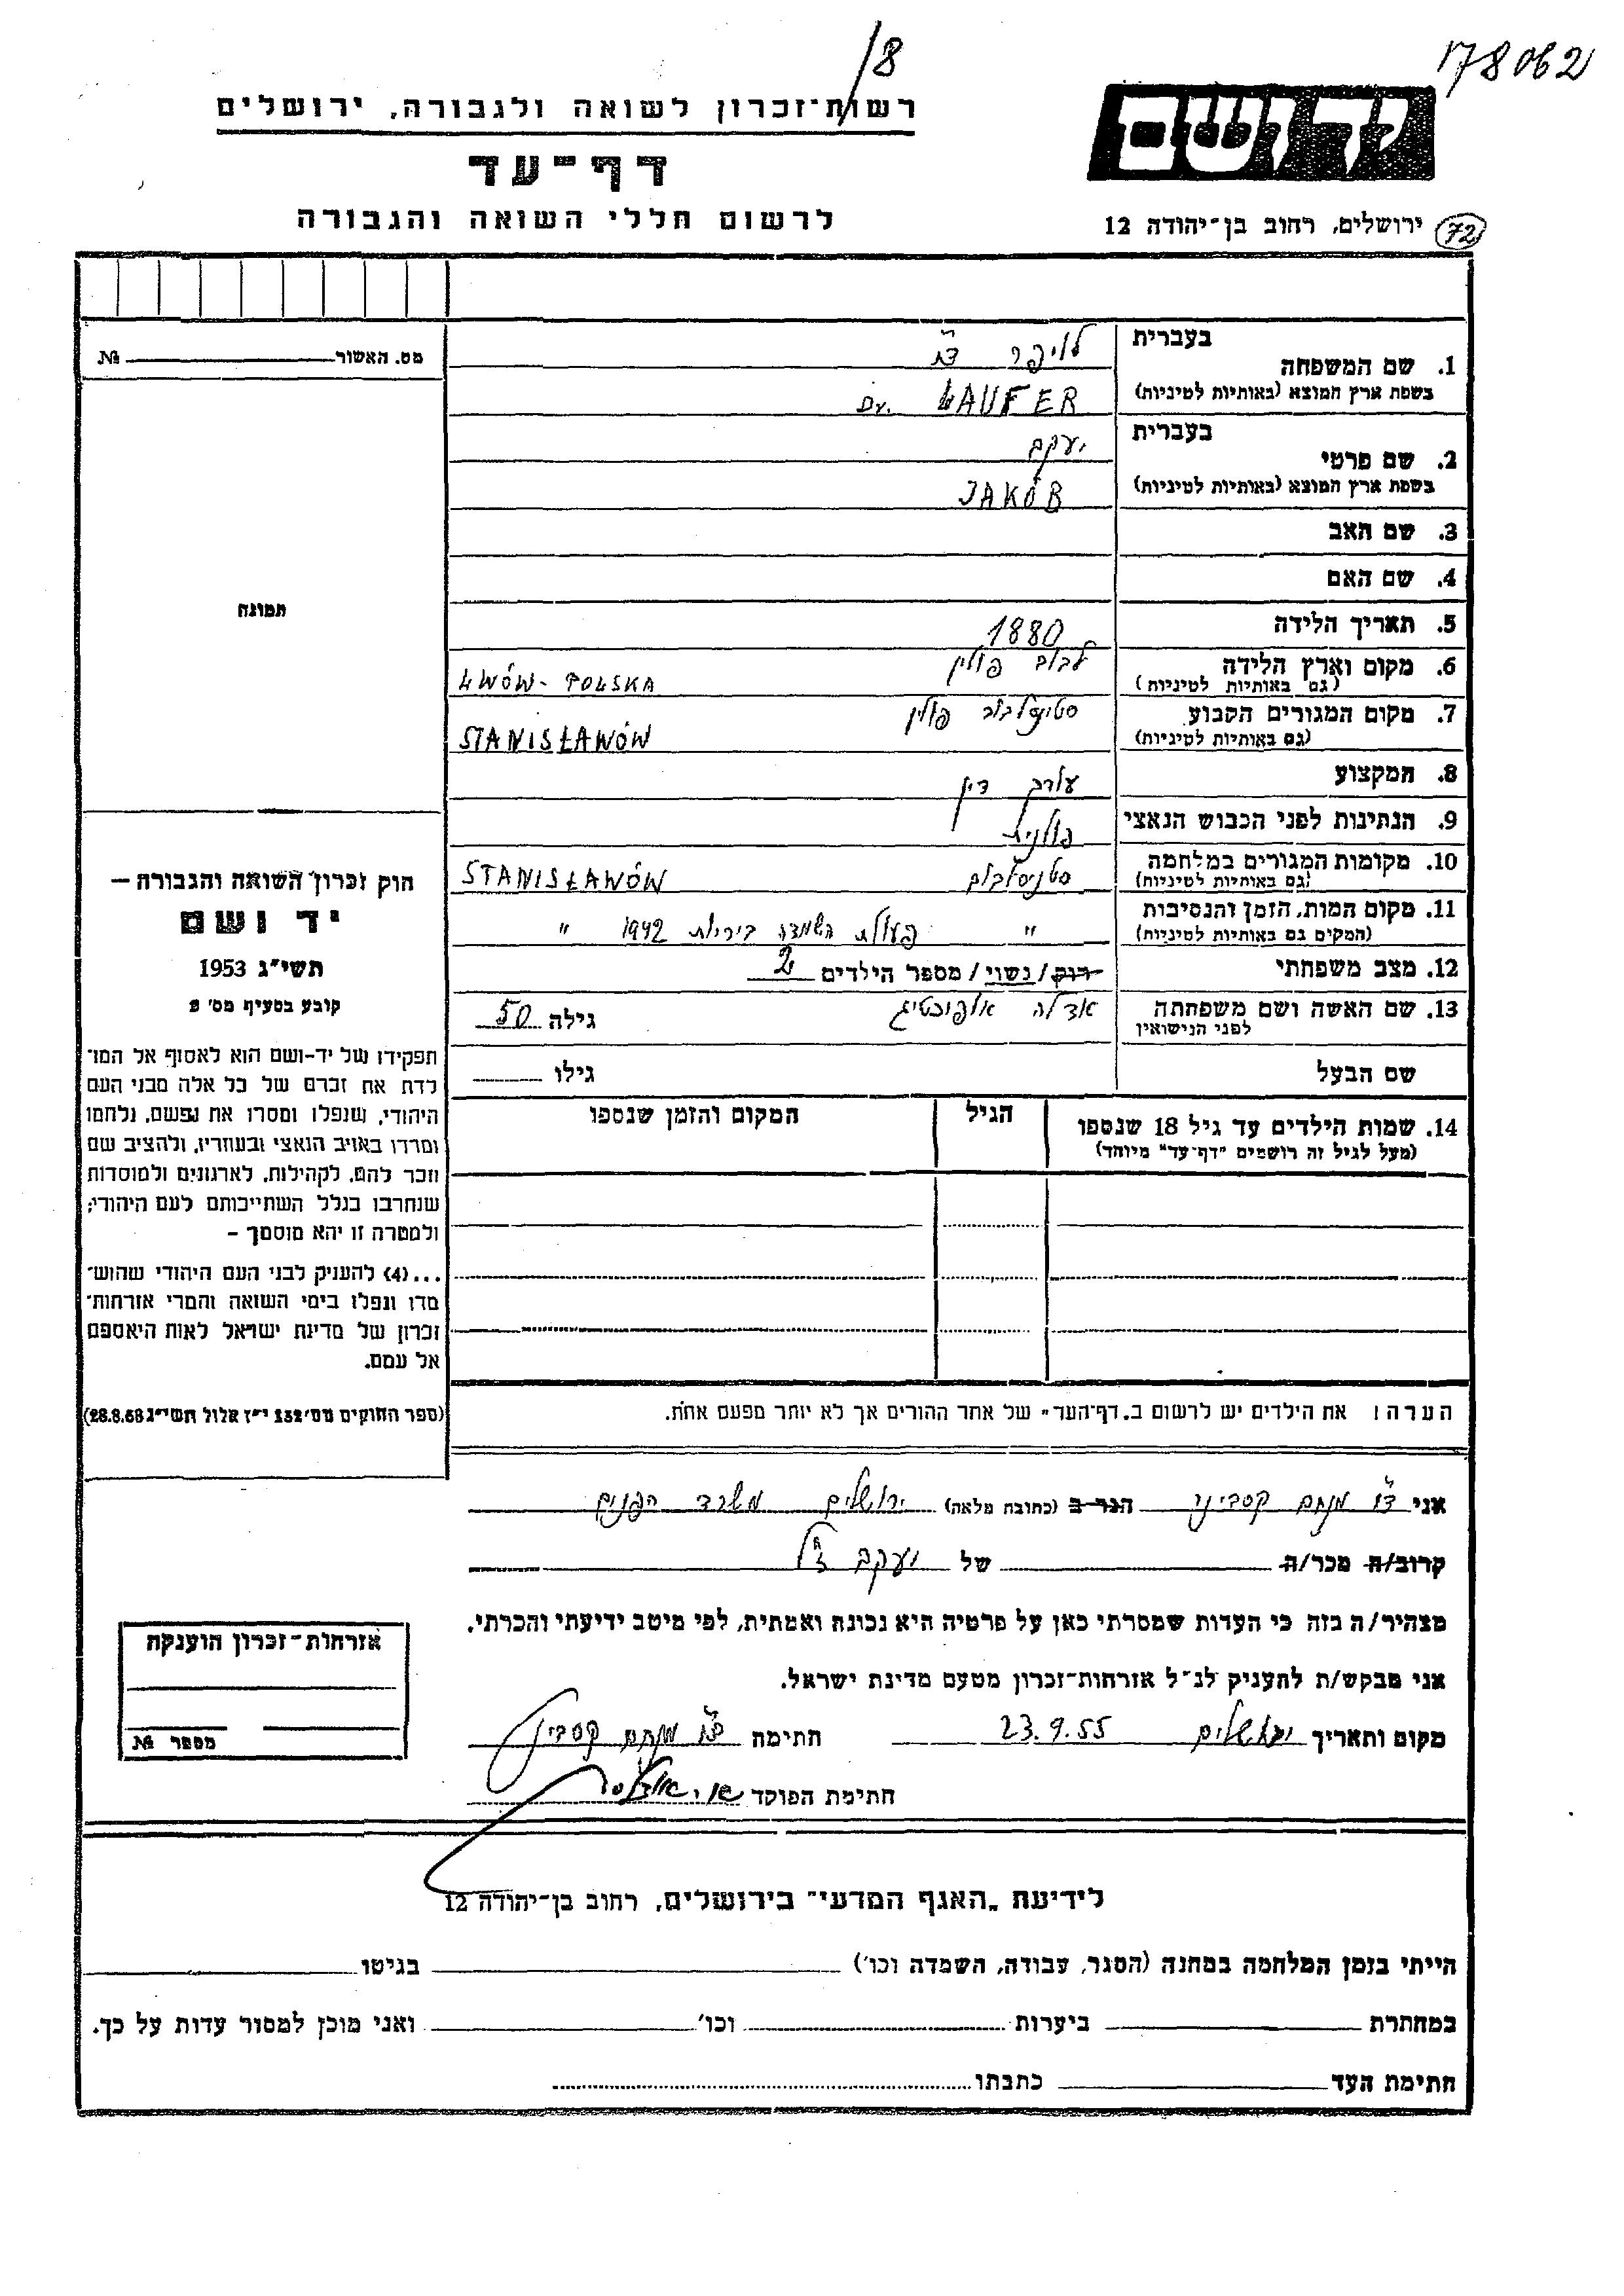 178062
/8
יד ושם
רשות-זכרון לשואה ולגבורה, ירושלים
דף-עד
לרשום חללי השואה והגבורה
ירושלים, רחוב בן-יהודה 12
72
בעברית
1. שם המשפחה
לויפר ד"ר
בשפת ארץ המוצא (באותיות לטיניות)
Dr. LAUFER
בעברית
2. שם פרטי
יעקב
בשפת ארץ המוצא (באותיות לטיניות)
JAKÓB
3. שם האב
4. שם האם
5. תאריך הלידה
1880
6. מקום וארץ הלידה
(גם באותיות לטיניות)
לבוב פולין
LWÓW - POLSKA
7. מקום המגורים הקבוע
(גם באותיות לטיניות)
סטניסלבוב פולין
STANISŁAWÓW
8. המקצוע
עורך דין
9. הנתינות לפני הכבוש הנאצי
פולנית
10. מקומות המגורים במלחמה
(גם באותיות לטיניות)
סטניסלבוב
STANISŁAWÓW
11. מקום המות, הזמן והנסיבות
(המקום גם באותיות לטיניות)
" פעולת השמדה 1942 "
12. מצב משפחתי
רוק/נשוי/ מספר הילדים 2
13. שם האשה ושם משפחתה
לפני הנישואין
אדלה
גילה 50
שם הבעל
גילו
14. שמות הילדים עד גיל 18 שנספו
(מעל לגיל זה רושמים "דף-עד" מיוחד)
הגיל
המקום והזמן שנספו
הערה: את הילדים יש לרשום ב"דף-העד" של אחד ההורים אך לא יותר מפעם אחת.
מס. האשור № 
תמונה
חוק זכרון השואה והגבורה —
יד ושם
תשי"ג 1953
קובע בסעיף מס' 2
תפקידו של יד-ושם הוא לאסוף אל המו-
לדת את זכרם של כל אלה מבני העם
היהודי, שנפלו ומסרו את נפשם, נלחמו
ומרדו באויב הנאצי ובעוזריו, ולהציב שם
וזכר להם, לקהילות, לארגונים ולמוסדות
שנחרבו בגלל השתייכותם לעם היהודי;
ולמטרה זו יהא מוסמך –
...(4) להעניק לבני העם היהודי שהוש-
מדו ונפלו בימי השואה והמרי אזרחות-
זכרון של מדינת ישראל לאות היאספם
אל עמם.
(ספר החוקים מס' 132 י"ז אלול תשי"ג 28.8.53)
אני ד"ר מנחם הגר ב (כתובת מלאה) ירושלים משרד הפנים
קרוב/ה מכר/ה של יעקב ז"ל
מצהיר/ה בזה כי העדות שמסרתי כאן על פרטיה היא נכונה ואמתית, לפי מיטב ידיעתי והכרתי.
אני מבקש/ת להעניק לנ"ל אזרחות-זכרון מטעם מדינת ישראל.
מקום ותאריך ירושלים 23.9.55 חתימה ד"ר מנחם
חתימת הפוקד
אזרחות-זכרון הוענקה
מספר №
לידיעת "האגף המדעי" בירושלים, רחוב בן-יהודה 12
הייתי בזמן המלחמה במחנה (הסגר, עבודה, השמדה וכו') בגיטו
במחתרת ביערות וכו' ואני מוכן למסור עדות על כך.
חתימת העד כתבתו